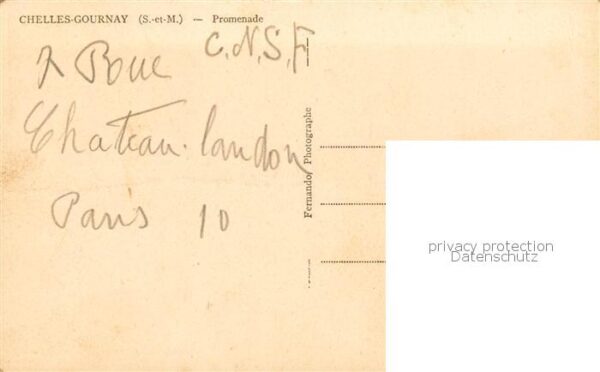 CHELLES-GOURNAY (S.-et-M.) — Promenade
C.N.S.F
Chateau-landon
Paris 10
Fernando, Photographe
privacy protection
Datenschutz